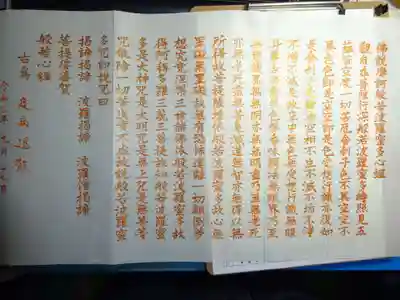 佛説摩訶般若波羅蜜多心経
観自在菩薩行深般若波羅蜜多時照見五
蘊皆空度一切苦厄舎利子色不異空空不
異色色即是空空即是色受想行識亦復如
是舎利子是諸法空相不生不滅不垢不浄
不増不減是故空中無色無受想行識無眼
耳鼻舌身意無色声香味触法無眼界乃至
無意識界無無明亦無無明尽乃至無老死
亦無老死尽無苦集滅道無智亦無得以無
所得故菩提薩埵依般若波羅蜜多故心無
罣礙無罣礙故無有恐怖遠離一切顛倒夢
想究竟涅槃三世諸佛依般若波羅蜜多故
得阿耨多羅三藐三菩提故知般若波羅蜜
多是大神呪是大明呪是無上呪是無等等
呪能除一切苦真実不虚故説般若波羅蜜
多呪即説呪曰
羯諦羯諦 波羅羯諦 波羅僧羯諦
菩提
般若心経